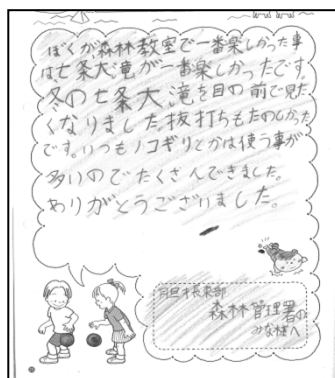 ぼくが森林教室で一番楽しかった事
は七条大滝が一番楽しかったです。
冬の七条大滝を目の前で見た
くなりました。抜打ちもたのしかった
です。いつもノコギリとかは使う事が
多いのでたくさんできました。
ありがとうございました。
森林管理署の
みな様へ